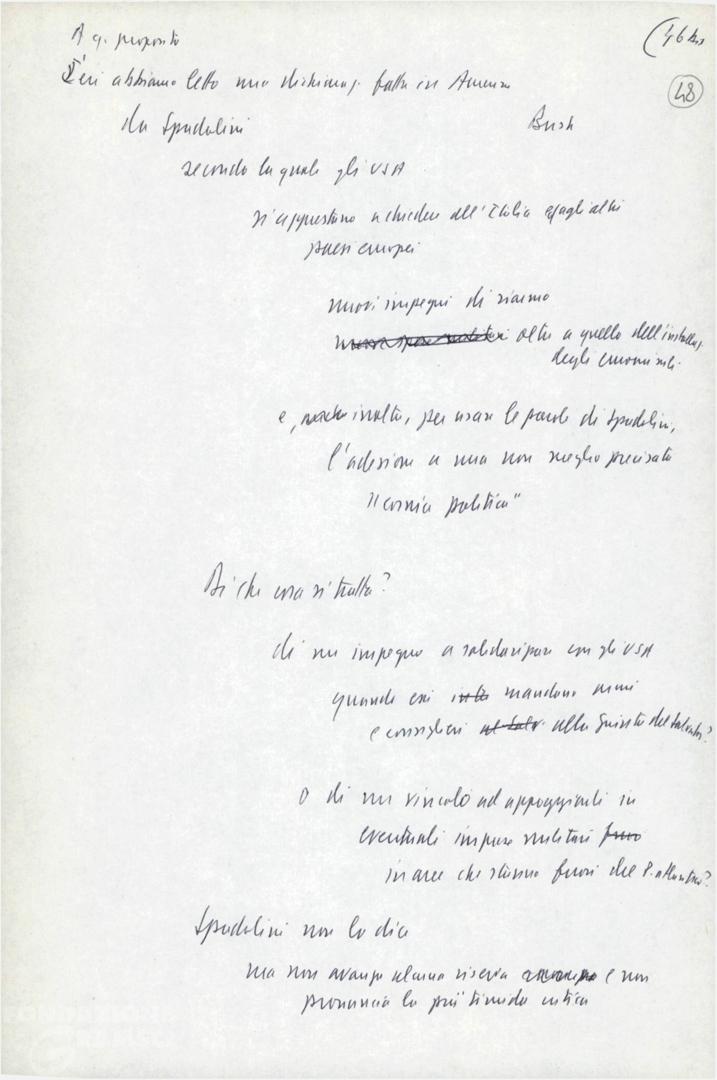 (46 bis
48
A q. proposito
Ieri abbiamo letto una dichiaraz. fatta in America
da Spadolini Bush
secondo la quale gli USA
si apprestano a chiedere all'Italia e agli altri
paesi europei
nuovi impegni di riarmo
nuove spese militari oltre a quello dell'installaz.
degli euromissili
e, inoltre, per usare le parole di Spadolini,
l'adesione a una non meglio precisata
"cornice politica"
Di che cosa si tratta?
di un impegno a solidarizzare con gli USA
quando essi mandano armi
e consiglieri al Salv. alla Giunta del Salvador?
O di un vincolo ad appoggiarli in
eventuali imprese militari fuori
in aree che stanno fuori del P. atlantico?
Spadolini non lo dice
ma non avanza alcuna riserva e non
pronuncia la più timida critica